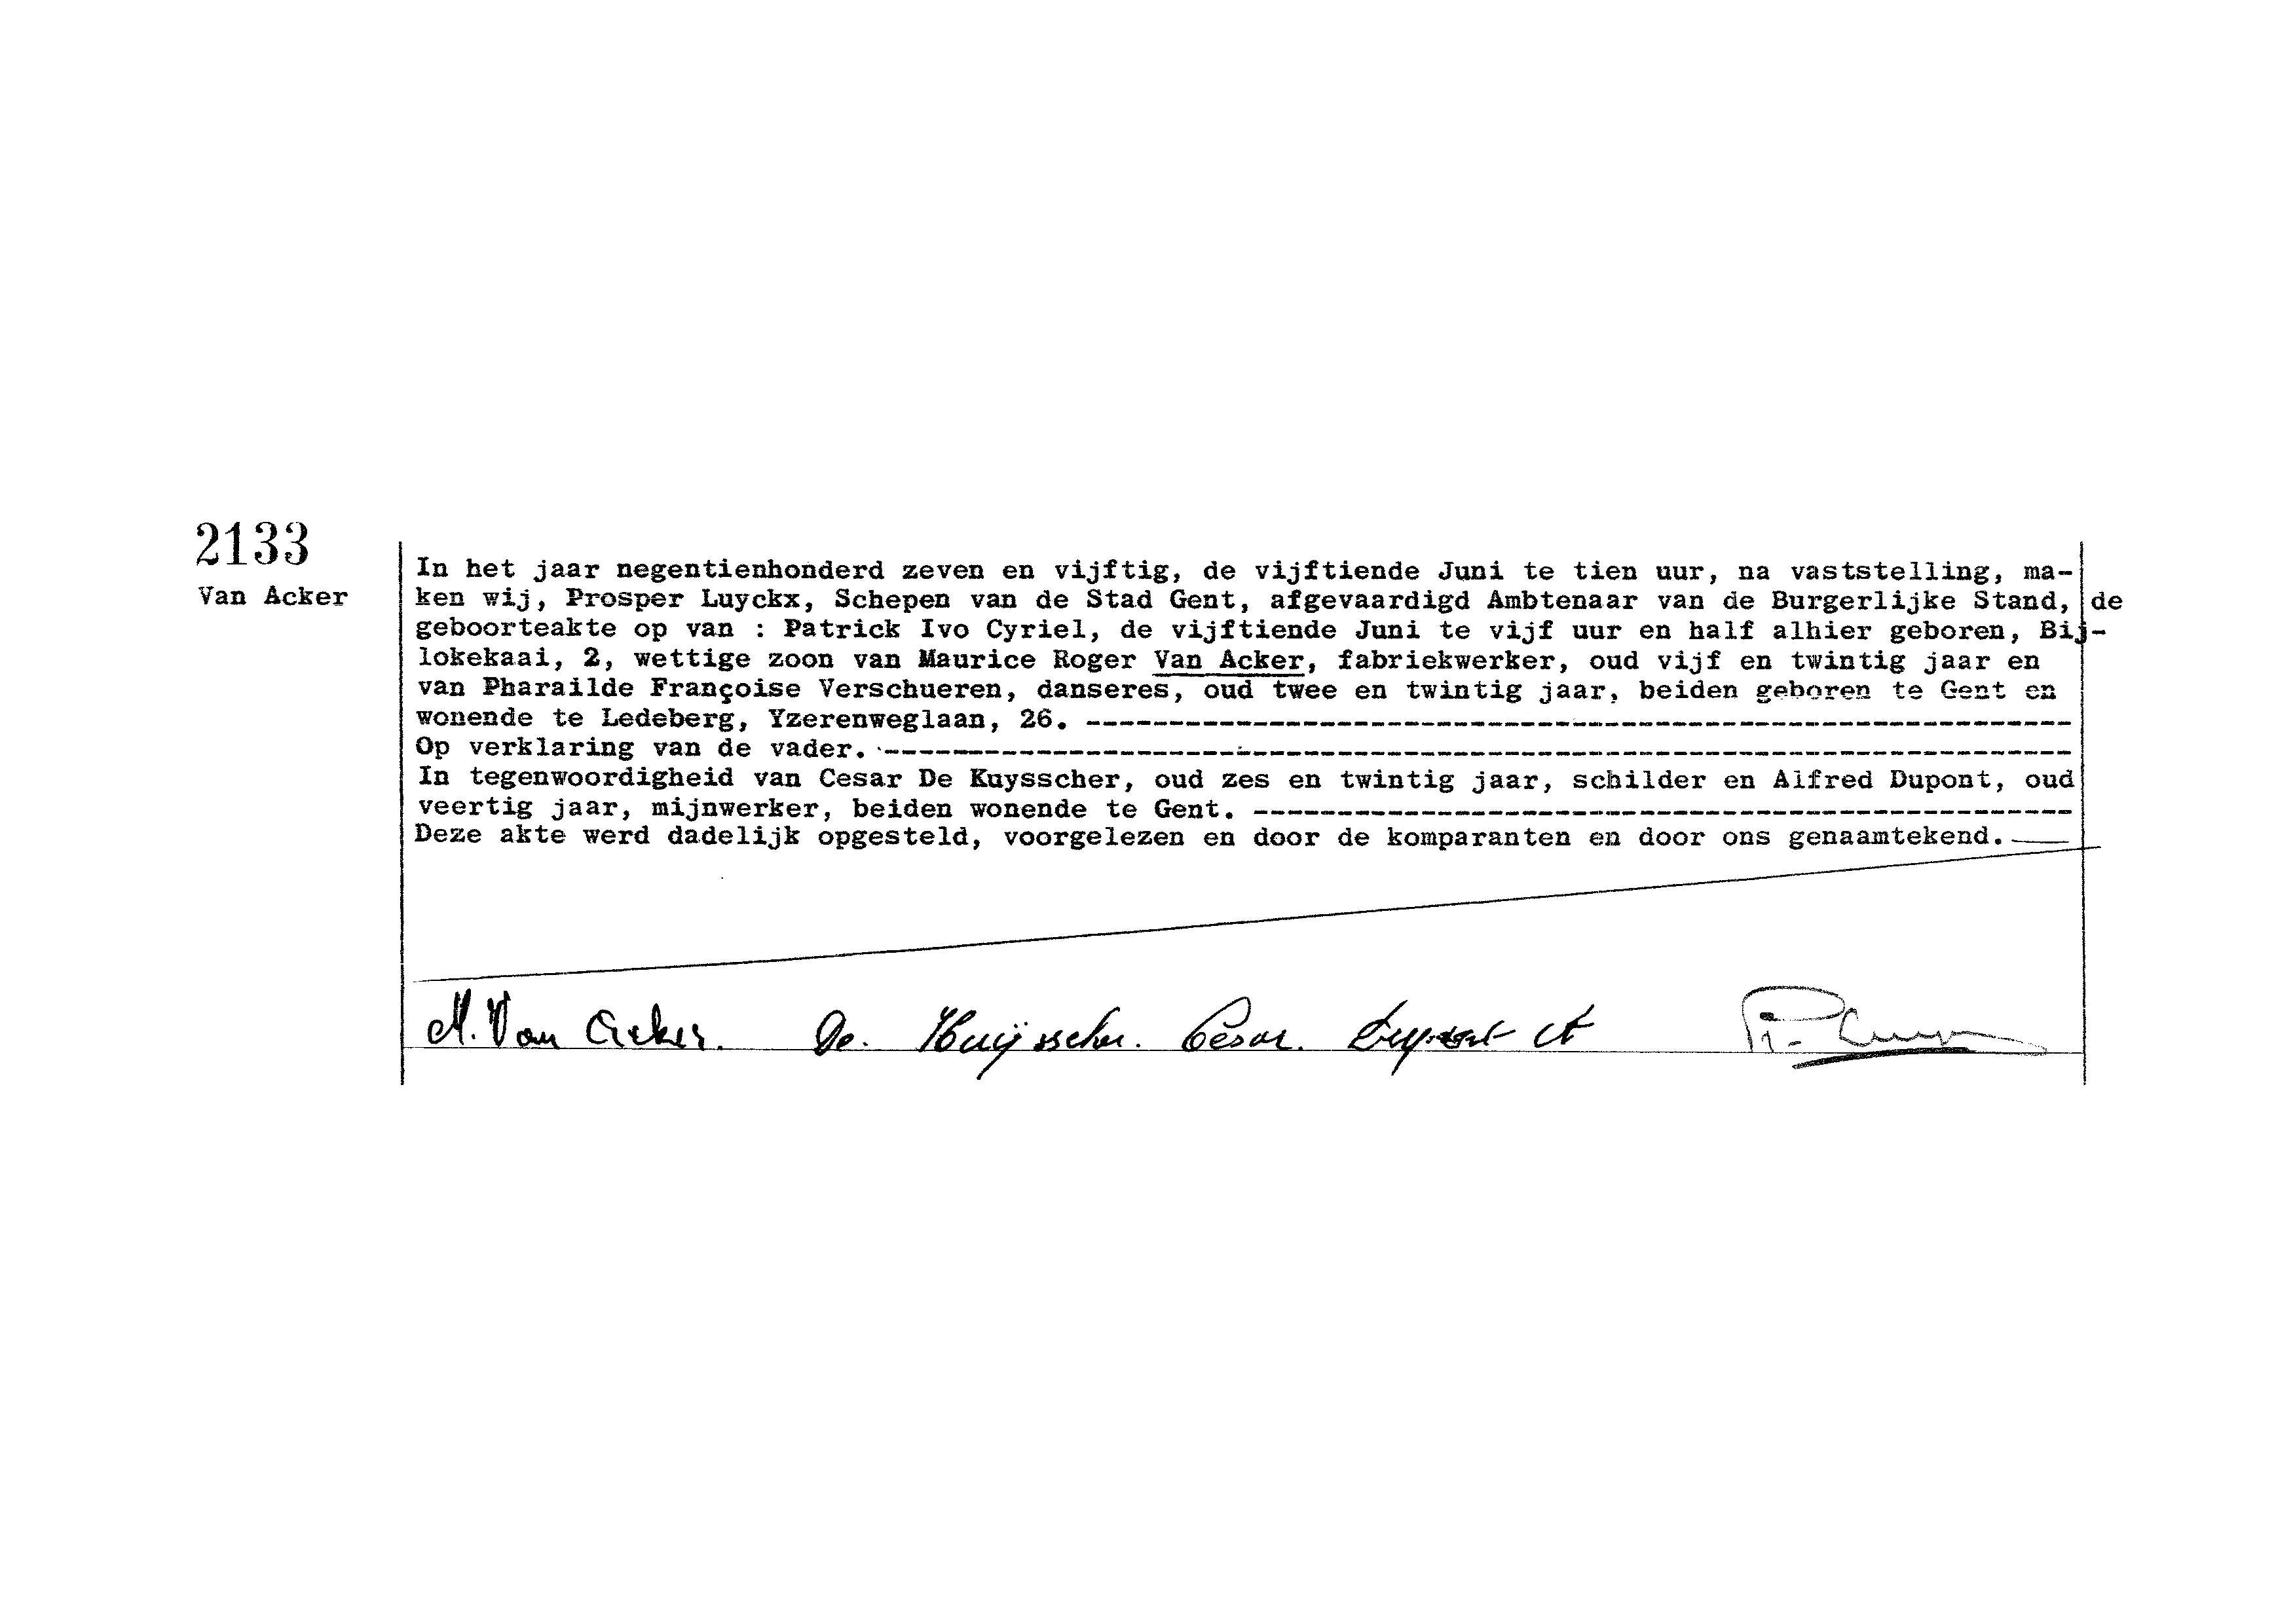 2133
Van Acker
In het jaar negentienhonderd zeven en vijftig, de vijftiende Juni te tien uur, na vaststelling, ma-
ken wij, Prosper Luyckx, Schepen van de Stad Gent, afgevaardigd Ambtenaar van de Burgerlijke Stand, de
geboorteakte op van : Patrick Ivo Cyriel, de vijftiende Juni te vijf uur en half alhier geboren, Bij-
lokekaai, 2, wettige zoon van Maurice Roger Van Acker, fabriekwerker, oud vijf en twintig jaar en
van Pharailde Françoise Verschueren, danseres, oud twee en twintig jaar, beiden geboren te Gent en
wonende te Ledeberg, Yzerenweglaan, 26. ---
Op verklaring van de vader. ---
In tegenwoordigheid van Cesar De Kuysscher, oud zes en twintig jaar, schilder en Alfred Dupont, oud
veertig jaar, mijnwerker, beiden wonende te Gent. ---
Deze akte werd dadelijk opgesteld, voorgelezen en door de komparanten en door ons genaamtekend.
M. Van Acker. De. Kuÿsscher. Césor. Dupont A